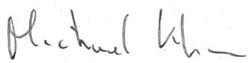 Michael Khan